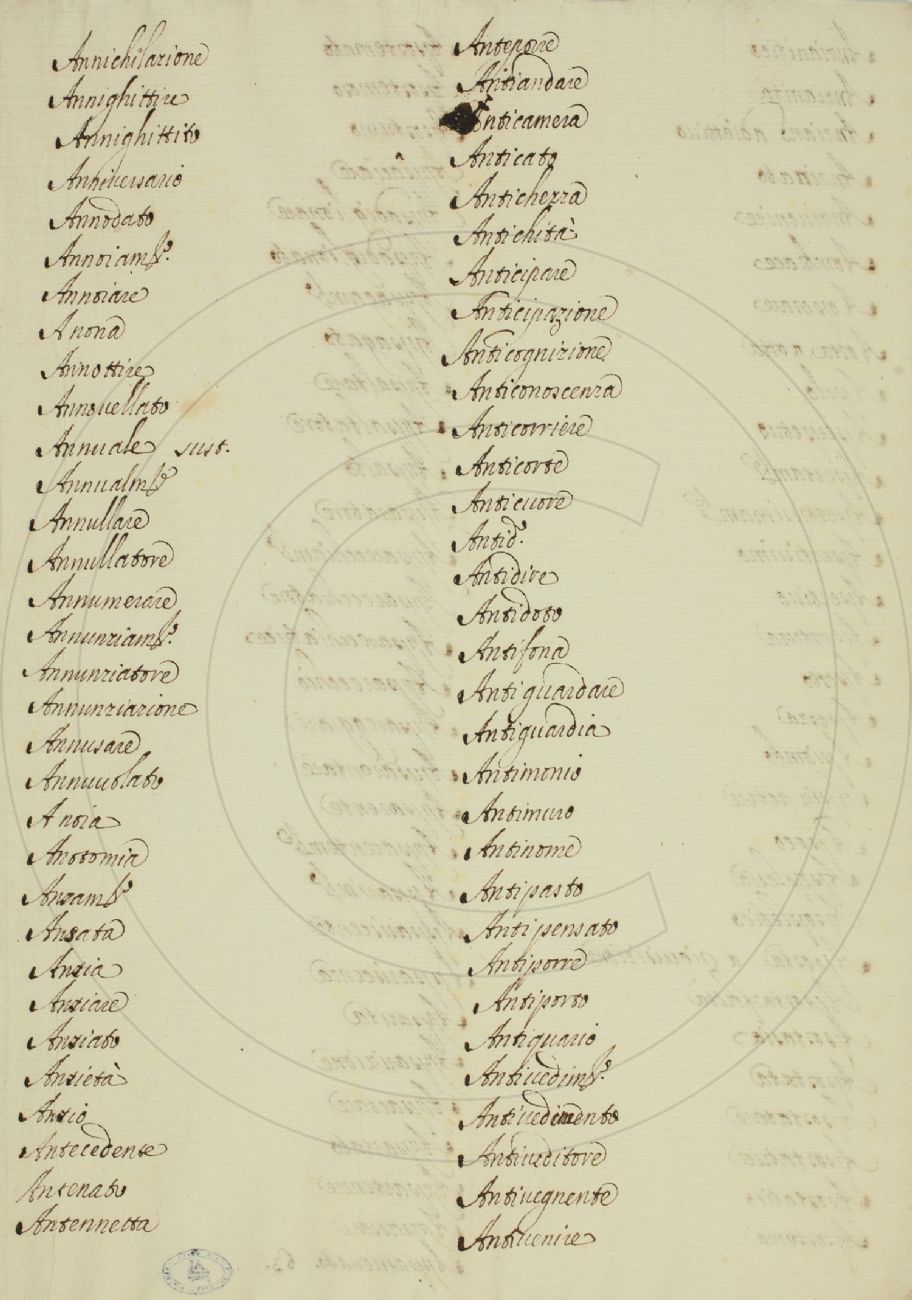 Annichilazione
Annighittire
Annighittito
Anniversario
Annodato
Annoiam.to
Annoiare
Anona
Annottire
Annovellato
Annuale sust.
Annualm.te
Annullare
Annullatore
Annumerare
Annunziam.to
Annunziatore
Annunziazione
Annusare
Annuvolato
Anoia
Anotomia
Ansam.to
Ansata
Ansia
Ansiare
Ansiato
Ansietà
Ansio
Antecedente
Antenato
Antennetta
Anteporre
Antiandare
Anticamera
Anticato
Antichezza
Antichità
Anticipare
Anticipazione
Anticognizione
Anticonoscenza
Anticorriere
Anticorte
Anticuore
Antid.o
Antidire
Antidoto
Antifona
Antiguardare
Antiguardia
Antimonio
Antimuro
Antinome
Antipasto
Antipensato
Antiporre
Antiporto
Antiquario
Antivedim.to
Antivedimento
Antiveditore
Antivegnente
Antivenire